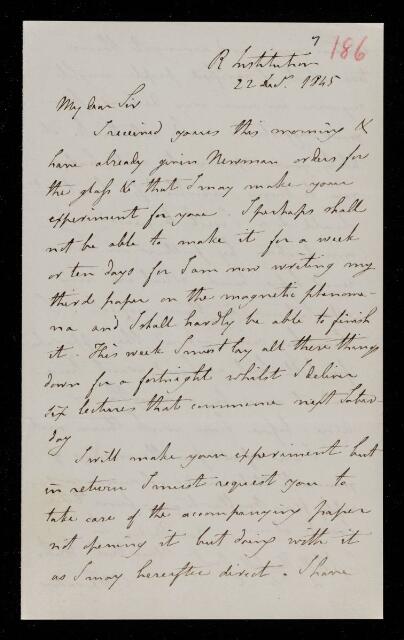 7
186
R Institution
22 Decr. 1845
My dear Sir
I received yours this morning &
have already given Newman orders for
the glass & that I may make your
experiment for you. I perhaps shall
not be able to make it for a week
or ten days for I am now writing my
third paper on the magnetic phenome-
na and I shall hardly be able to finish
it. This week I must lay all these things
down for a fortnight whilst I deliver
six lectures that commence next Satur-
day
I will make your experiment but
in return I must request you to
take care of the accompanying paper
not opening it but doing with it
as I may hereafter direct. I have